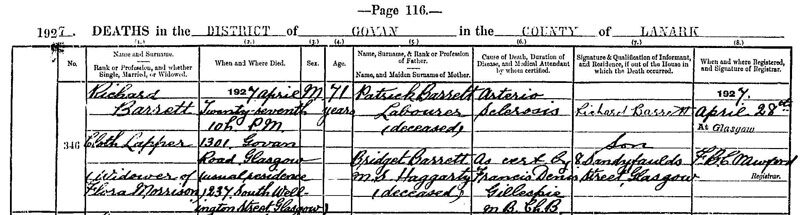 —Page 116.—
1927. DEATHS in the DISTRICT of GOVAN in the COUNTY of LANARK
(1.) (2.) (3.) (4.) (5.) (6.) (7.) (8.)
No.
Name and Surname.
Rank or Profession, and whether Single, Married, or Widowed.
When and Where Died.
Sex.
Age.
Name, Surname, & Rank or Profession of Father.
Name, and Maiden Surname of Mother.
Cause of Death, Duration of Disease, and Medical Attendant by whom certified.
Signature & Qualification of Informant, and Residence, if out of the House in which the Death occurred.
When and where Registered, and Signature of Registrar.
346
Richard
Barrett
Cloth Lapper
(Widower of
Flora Morrison)
1927 April
Twenty seventh
10h. P.M.
1301 Govan
Road Glasgow
usual residence
1237 South Well-
ington Street Glasgow)
M
71
years
Patrick Barrett
Labourer
(deceased)
Bridget Barrett
m.s. Haggarty
(deceased)
Arterio
Sclerosis
As cert by
Francis Denis
Gillespie
M.B. Ch.B
Richard Barrett
Son
8 Sandyfaulds
Street, Glasgow
1927.
April 28th
At Glasgow
Registrar.